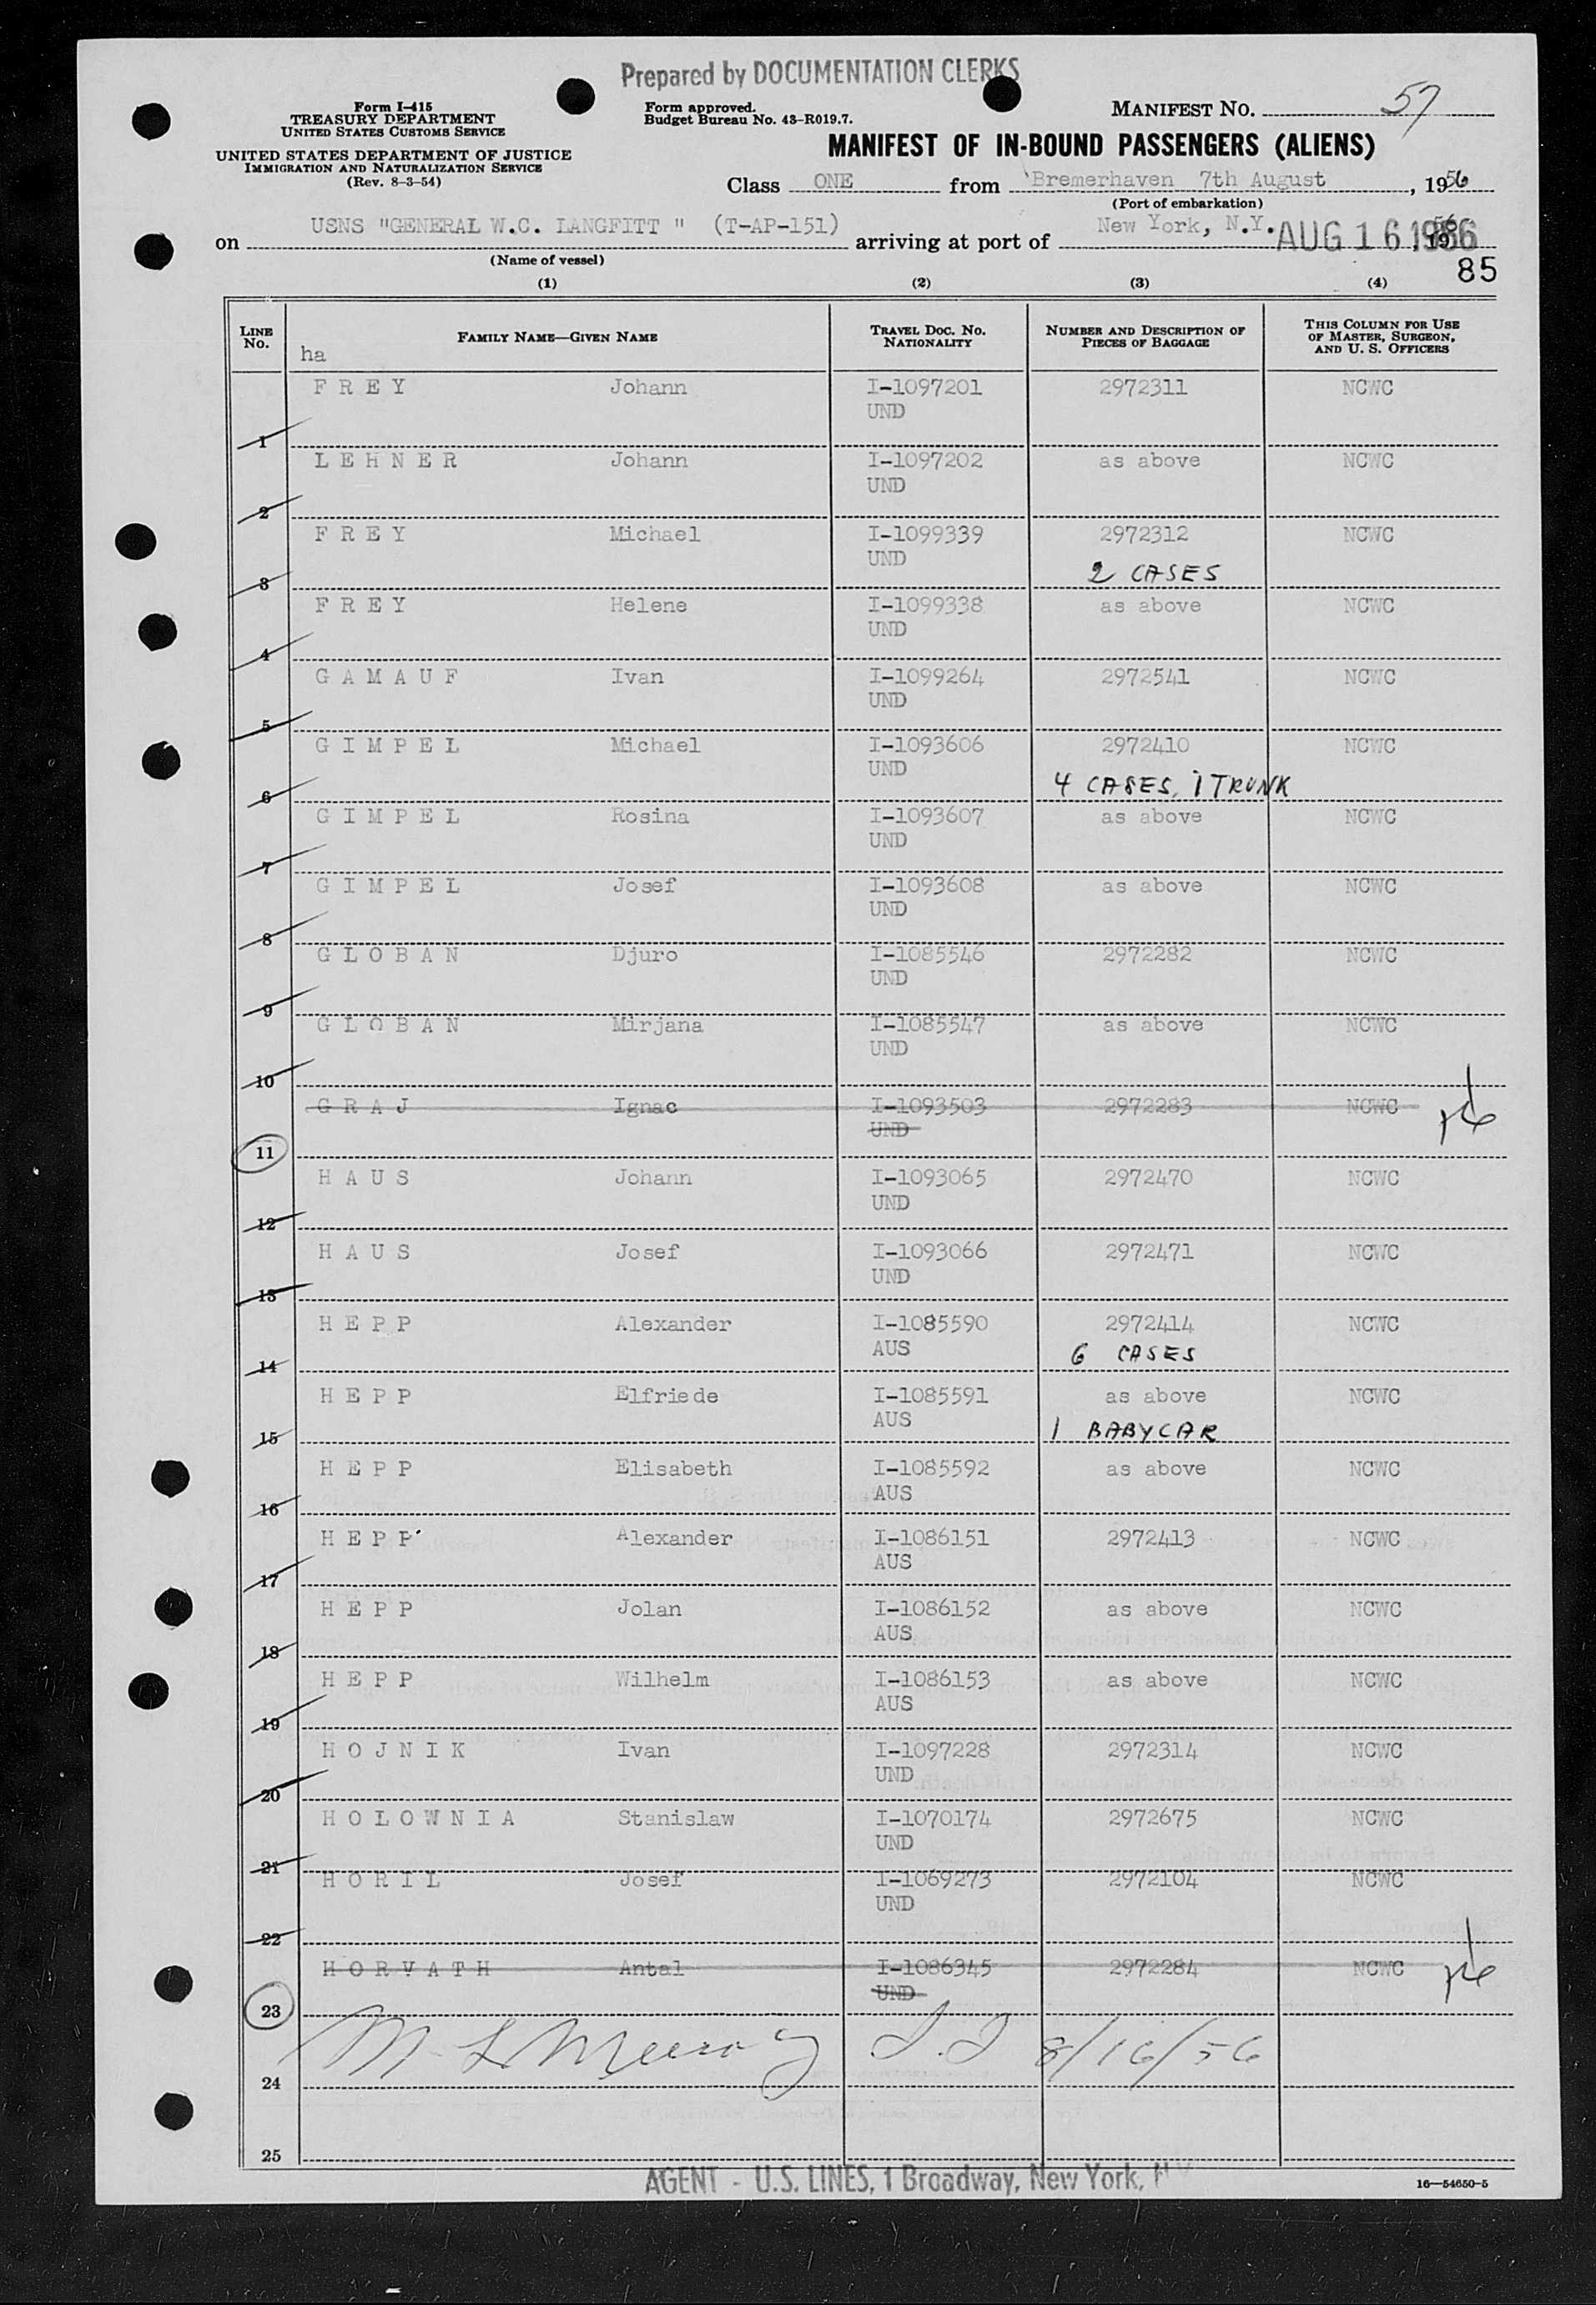 Prepared by DOCUMENTATION CLERKS
Form I-415
TREASURY DEPARTMENT
UNITED STATES CUSTOMS SERVICE
UNITED STATES DEPARTMENT OF JUSTICE
IMMIGRATION AND NATURALIZATION SERVICE
(Rev. 8-3-54)
Form approved.
Budget Bureau No. 43-R019.7.
MANIFEST NO. 57
MANIFEST OF IN-BOUND PASSENGERS (ALIENS)
Class ONE from Bremerhaven 7th August, 1956
(Port of embarkation)
on USNS "GENERAL W.C. LANGFITT " (T-AP-151) arriving at port of New York, N.Y. AUG 16 1956
(Name of vessel)
85
(1) (2) (3) (4)
LINE NO. FAMILY NAME—GIVEN NAME TRAVEL DOC. NO. NATIONALITY NUMBER AND DESCRIPTION OF PIECES OF BAGGAGE THIS COLUMN FOR USE OF MASTER, SURGEON, AND U. S. OFFICERS
ha
FREY Johann I-1097201 2972311 NCWC
UND
1
LEHNER Johann I-1097202 as above NCWC
UND
2
FREY Michael I-1099339 2972312 NCWC
UND 2 CASES
3
FREY Helene I-1099338 as above NCWC
UND
4
GAMAUF Ivan I-1099264 2972541 NCWC
UND
5
GIMPEL Michael I-1093606 2972410 NCWC
UND 4 CASES, 1 TRUNK
6
GIMPEL Rosina I-1093607 as above NCWC
UND
7
GIMPEL Josef I-1093608 as above NCWC
UND
8
GLOBAN Djuro I-1085546 2972282 NCWC
UND
9
GLOBAN Mirjana I-1085547 as above NCWC
UND
10
GRAJ Ignac I-1093503 2972283 NCWC
UND
11
HAUS Johann I-1093065 2972470 NCWC
UND
12
HAUS Josef I-1093066 2972471 NCWC
UND
13
HEPP Alexander I-1085590 2972414 NCWC
AUS 6 CASES
14
HEPP Elfriede I-1085591 as above NCWC
AUS 1 BABYCAR
15
HEPP Elisabeth I-1085592 as above NCWC
AUS
16
HEPP Alexander I-1086151 2972413 NCWC
AUS
17
HEPP Jolan I-1086152 as above NCWC
AUS
18
HEPP Wilhelm I-1086153 as above NCWC
AUS
19
HOJNIK Ivan I-1097228 2972314 NCWC
UND
20
HOLOWNIA Stanislaw I-1070174 2972675 NCWC
UND
21
HORIL Josef I-1069273 2972104 NCWC
UND
22
HORVATH Antal I-1086345 2972284 NCWC
UND
23
8/16/56
24
25
AGENT - U.S. LINES, 1 Broadway, New York,
16—54650-5